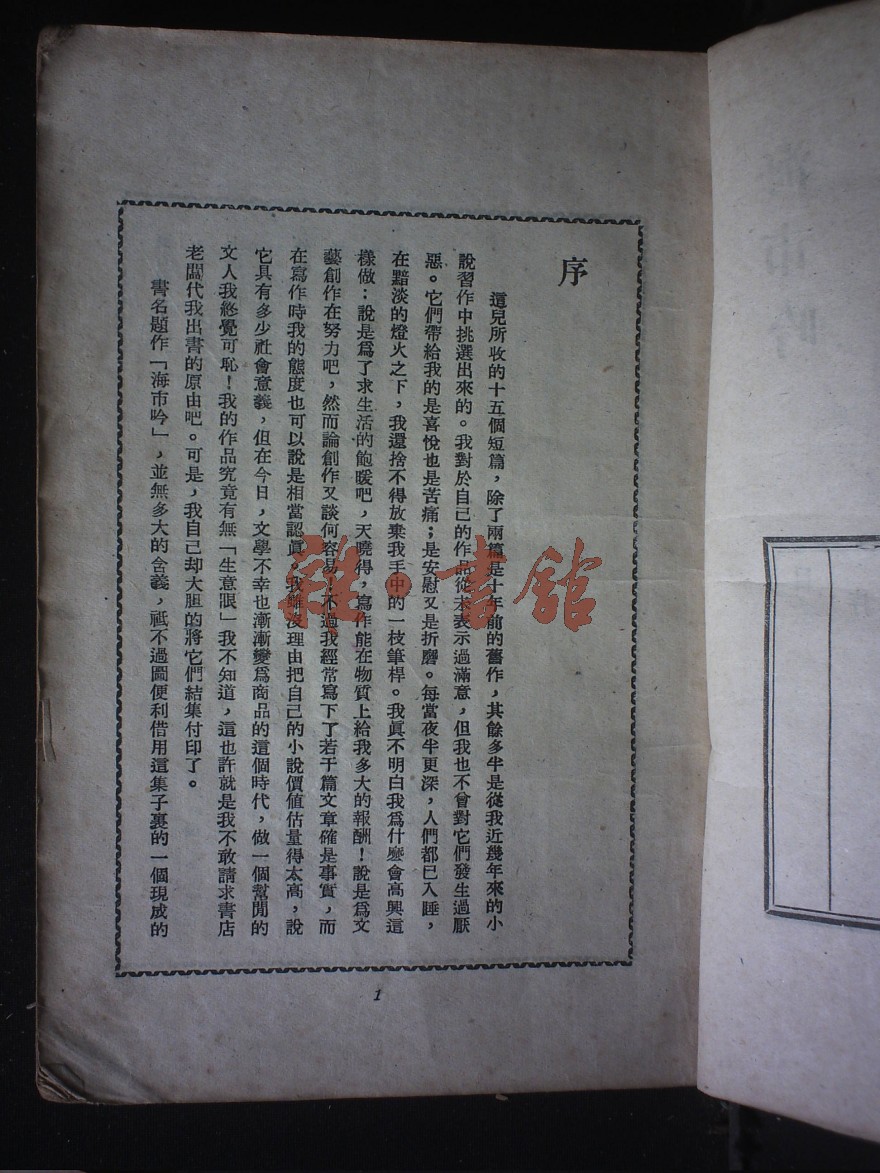 序
這兒所收的十五個短篇，除了兩篇是十年前的舊作，其餘多半是從我近幾年來的小
說習作中挑選出來的。我對於自己的作品從未表示過滿意，但我也不曾對它們發生過厭
惡。它們帶給我的是喜悅也是苦痛；是安慰又是折磨。每當夜半更深，人們都已入睡，
在黯淡的燈火之下，我還捨不得放棄我手中的一枝筆桿。我眞不明白我爲什麽會高興這
樣做：說是爲了求生活的飽暖吧，天曉得，寫作能在物質上給我多大的報酬！說是爲文
藝創作在努力吧，然而論創作又談何容易！不過我經常寫下了若干篇文章確是事實，而
在寫作時我的態度也可以說是相當認眞，我雖沒理由把自己的小說價値估量得太高，說
它具有多少社會意義，但在今日，文學不幸也漸漸變爲商品的這個時代，做一個幫閒的
文人我終覺可恥！我的作品究竟有無「生意眼」我不知道，這也許就是我不敢請求書店
老闆代我出書的原由吧。可是，我自己却大胆的將它們結集付印了。
書名題作「海市吟」，並無多大的含義，祗不過圖便利借用這集子裏的一個現成的
1
雜·書館